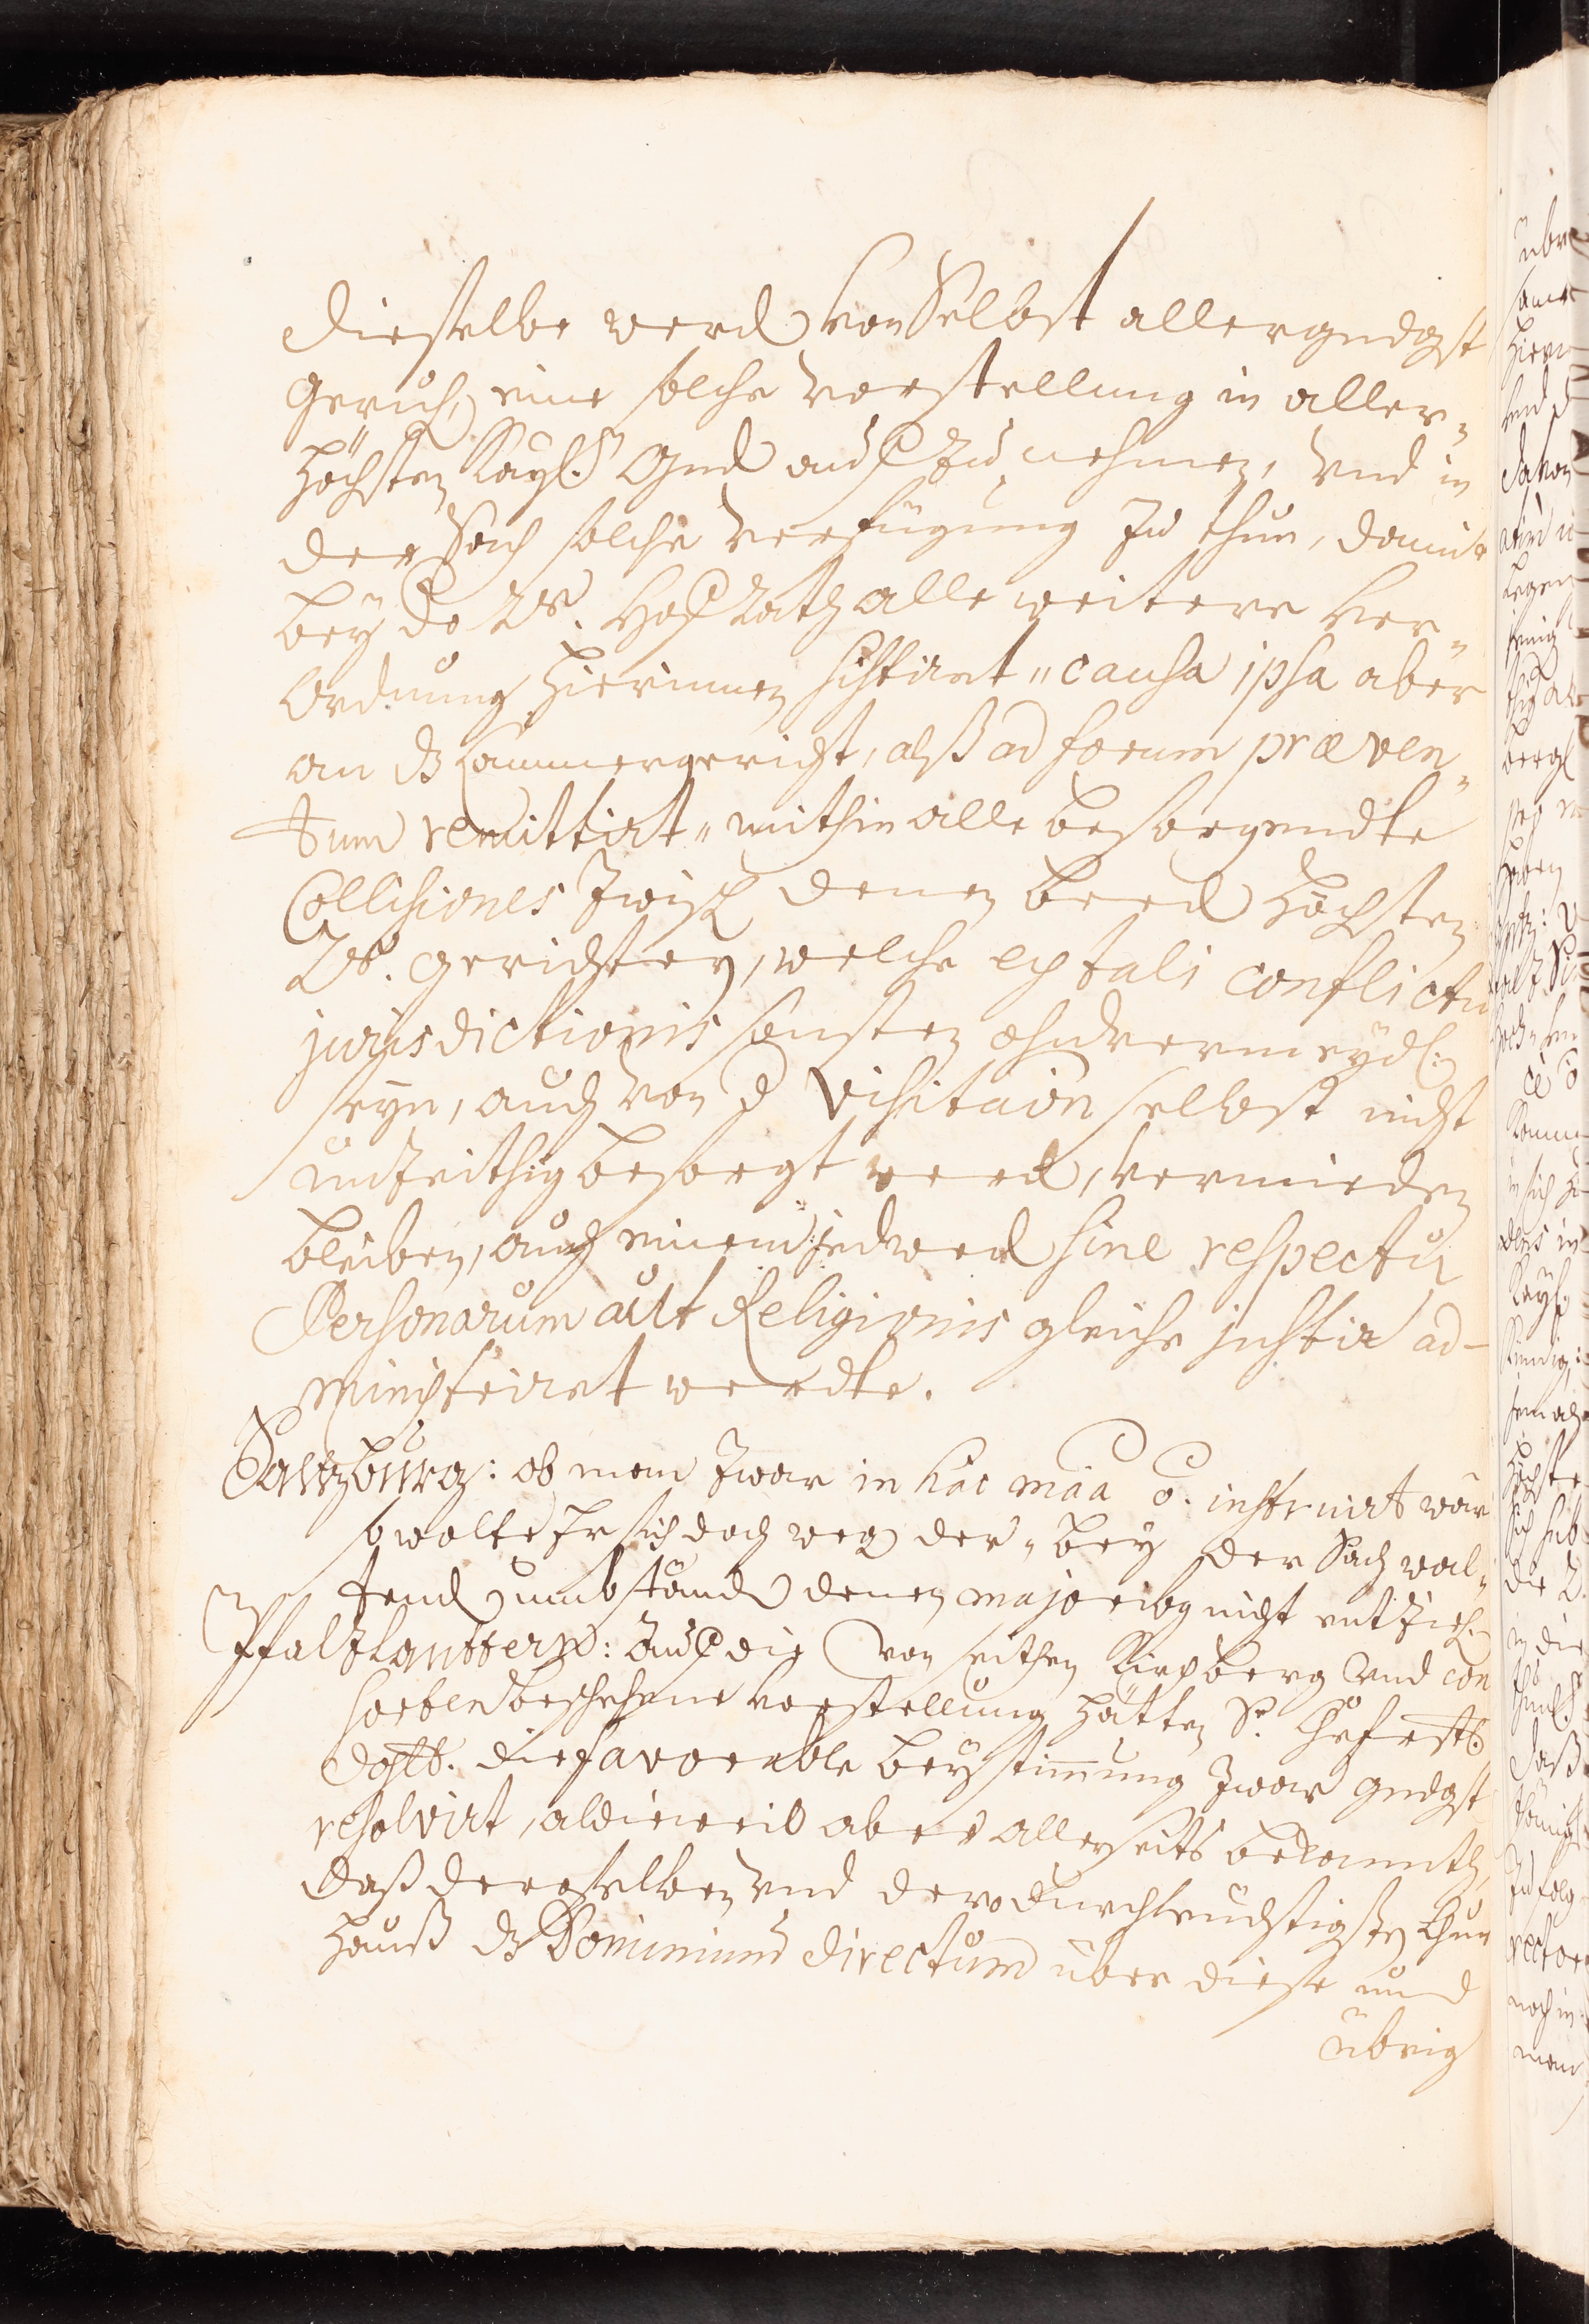 dieselbe werd von Selbst allergndgst
geruh, eine solche vorstellung in aller-
höchsten Kayl. Gnd auff zu nehmen, und in
der Sach solche verfügung zu thun, damit
bey do Rß. Hoff Rath alle weitere ver-
ordnung hierinnen sistirt, causa ipsa aber
an dz Cammergericht, alß ad forum præven-
tum remittirt, mithin alle besorgendte
Collisiones zwisch denen beed höchsten
Rß. gerichten, welche ex tali conflictu
jurisdictionis sonsten ohnvermeydl:
seyn, auch von d Visitaõn selbst nicht
unzeithig besorgt werd, vermieden
bleiben, auch einem jedwed sine respectu
Personarum aut Religionis gleiche justiz ad-
ministrirt werdte.
Saltzburg: ob man zwar in hac mãa õ. instruirt wär
so wolte Er sich doch weg der, bey der Sach wal-
tend umbständ denen majoribg nicht entzieh.
Pfaltzlauttern: Auff die von seithen Kirchberg und con
sorten beschehene vorstellung hätten Sr. Chrfrstl.
dhlt. die favorable beystimmung zwar gndgst
resolvirt, aldieweil aber allerseits bekannth,
daß deroselben und dero durchleuchtigsten Chur
hauß dz Dominium directum über diese und
übrig